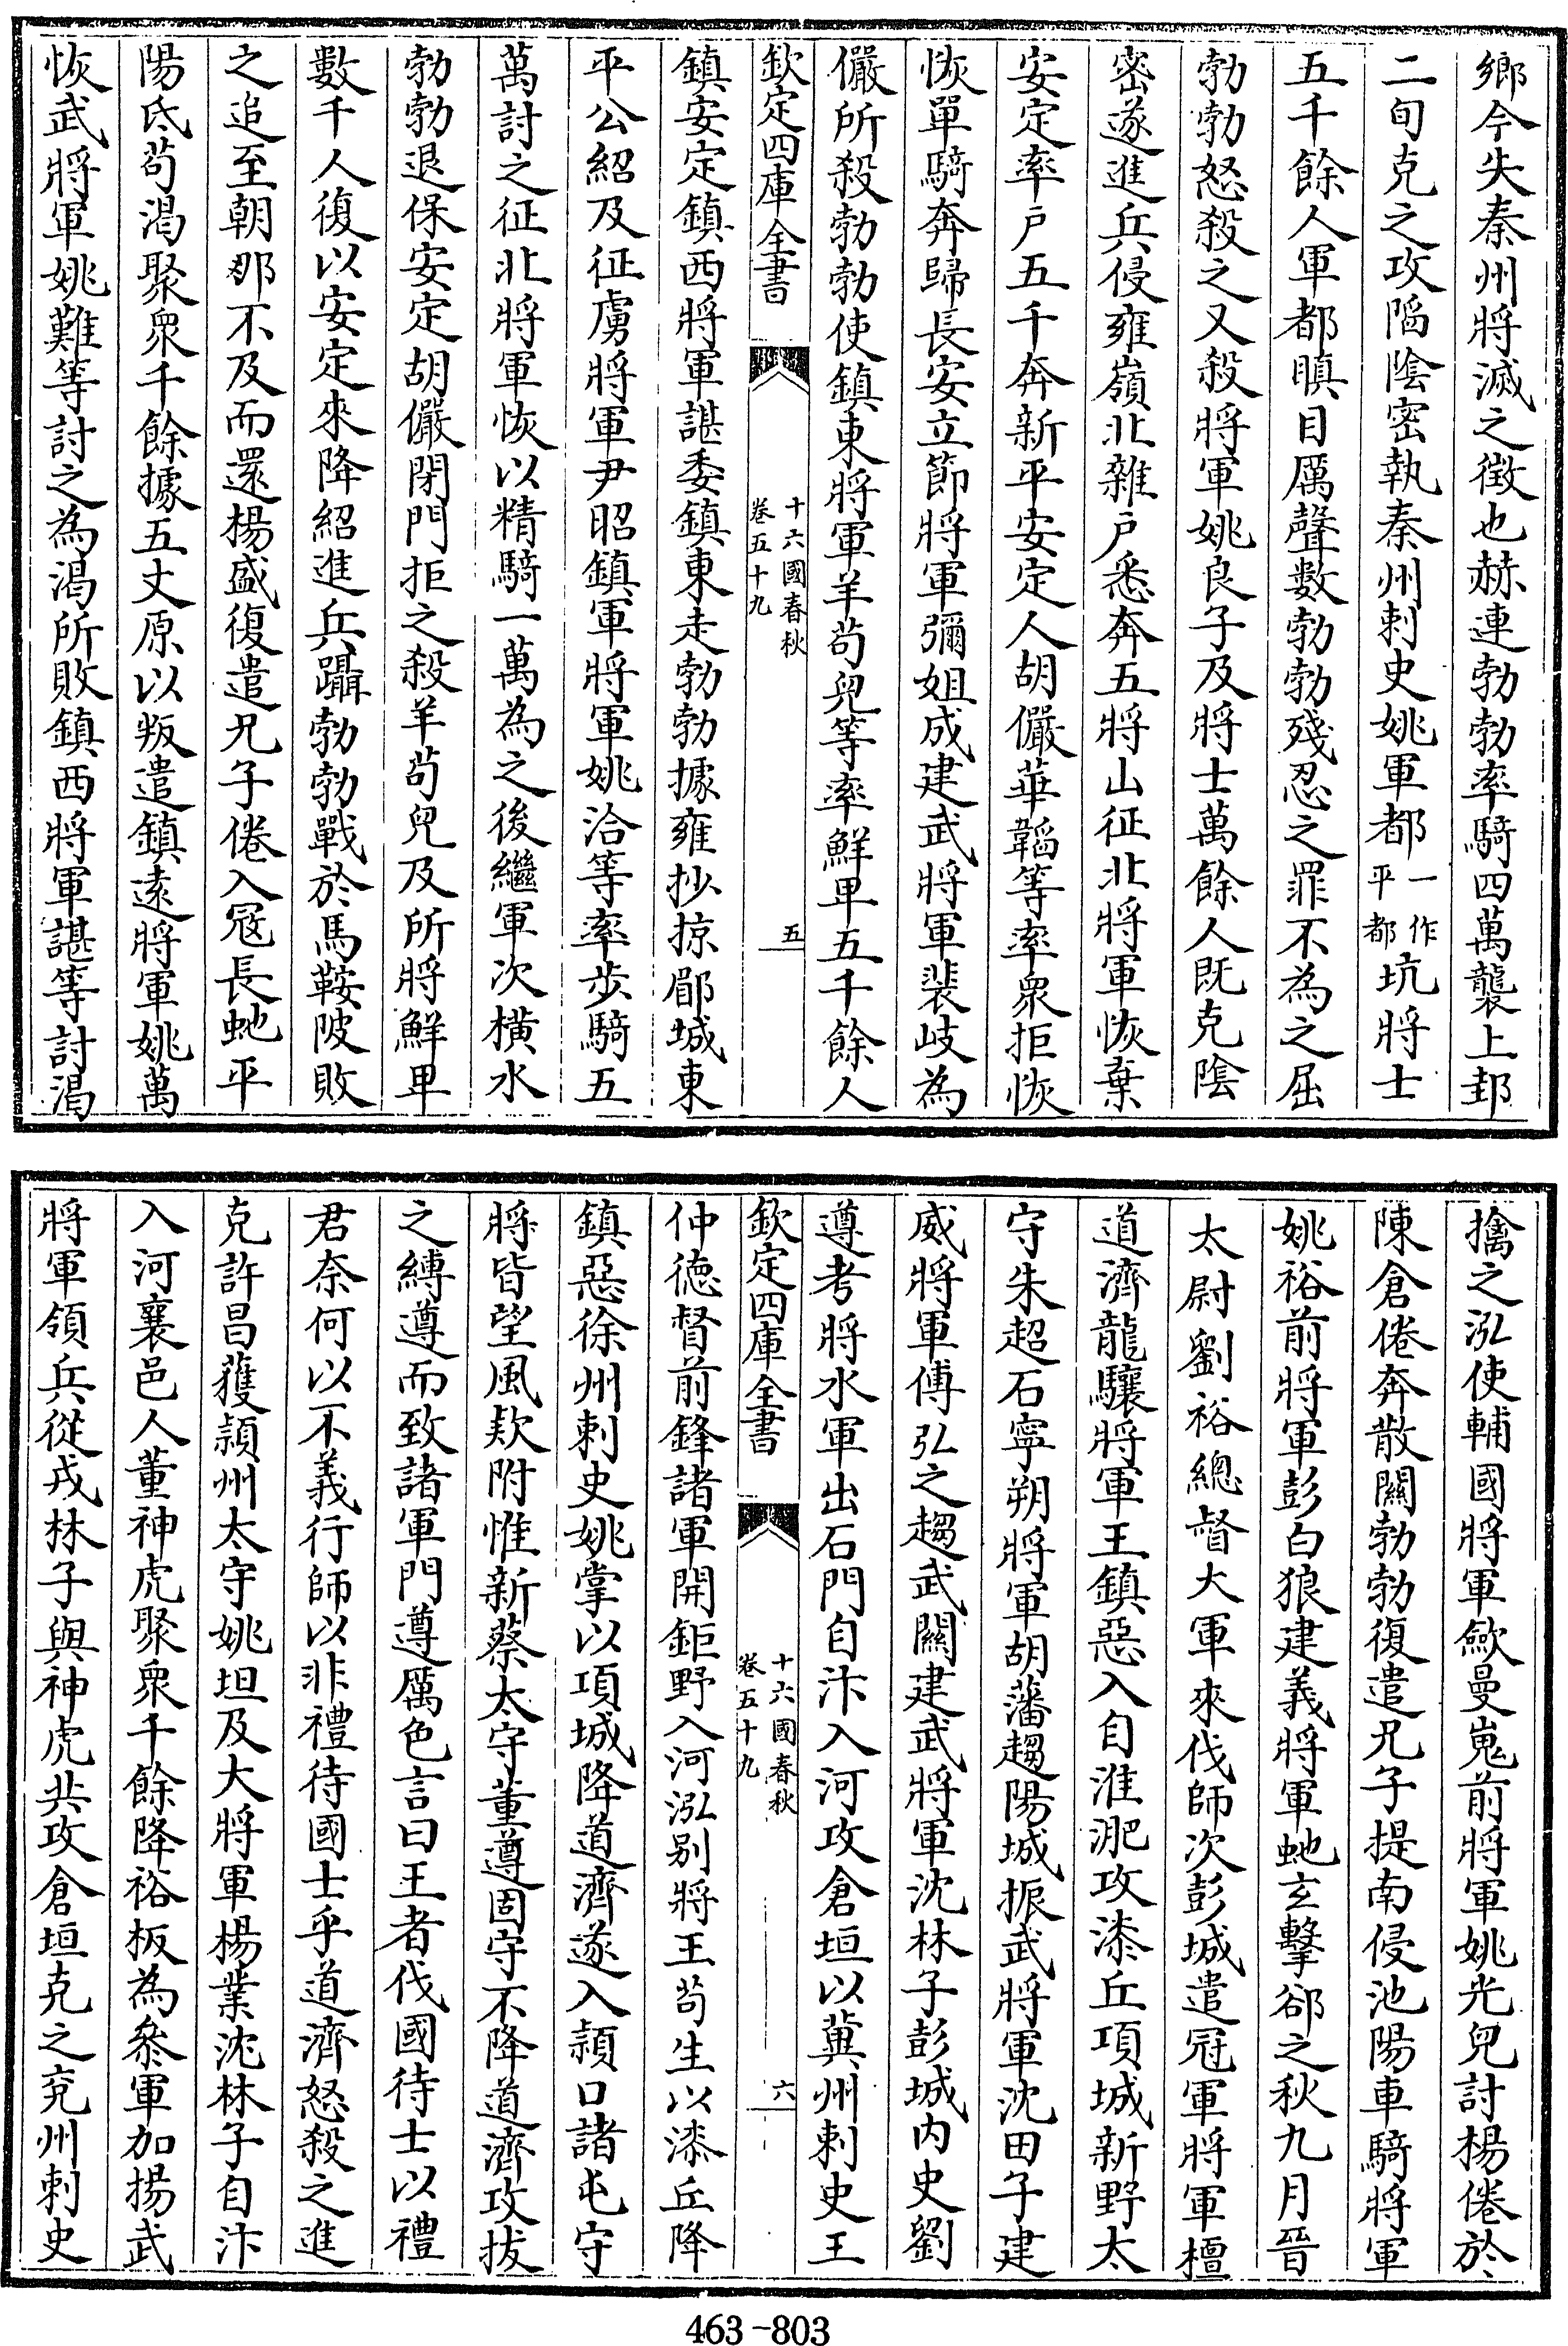 鄉今失秦州將滅之徴也赫連勃勃率騎四萬襲上邽
二旬克之攻陷陰密執秦州刺史姚軍都一作平都坑將士
五千餘人軍都瞋目厲聲數勃勃殘忍之罪不為之屈
勃勃怒殺之又殺將軍姚良子及將士萬餘人既克陰
密遂進兵侵雍嶺北雜戶悉奔五將山征北將軍恢棄
安定率戶五千奔新平安定人胡儼華韜等率衆拒恢
恢單騎奔歸長安立節將軍彌姐成建武將軍裴岐為
儼所殺勃勃使鎮東將軍羊茍兒等率鮮卑五千餘人
欽定四庫全書
十六國春秋
卷五十九
五
鎮安定鎮西將軍諶委鎮東走勃勃據雍抄掠郿城東
平公紹及征虜將軍尹昭鎮軍將軍姚洽等率步騎五
萬討之征北將軍恢以精騎一萬為之後繼軍次橫水
勃勃退保安定胡儼閉門拒之殺羊茍兒及所將鮮卑
數千人復以安定來降紹進兵躡勃勃戰於馬鞍陂敗
之追至朝那不及而還楊盛復遣兄子倦入冦長虵平
陽氐茍渴聚衆千餘據五丈原以叛遣鎮遠將軍姚萬
恢武將軍姚難等討之為渴所敗鎮西將軍諶等討渴
擒之泓使輔國將軍歛曼嵬前將軍姚光兒討楊倦於
陳倉倦奔散關勃勃復遣兄子提南侵池陽車騎將軍
姚裕前將軍彭白狼建義將軍虵玄擊卻之秋九月晉
太尉劉裕總督大軍來伐師次彭城遣冠軍將軍檀
道濟龍驤將軍王鎮惡入自淮淝攻漆丘項城新野太
守朱超石寧朔將軍胡藩趨陽城振武將軍沈田子建
威將軍傅弘之趨武關建武將軍沈林子彭城内史劉
遵考將水軍出石門自汴入河攻倉垣以冀州刺史王
欽定四庫全書
十六國春秋
卷五十九
六
仲德督前鋒諸軍開鉅野入河泓别將王茍生以漆丘降
鎮惡徐州刺史姚掌以項城降道濟遂入潁口諸屯守
將皆望風欵附惟新蔡太守董遵固守不降道濟攻拔
之縛遵而致諸軍門遵厲色言曰王者伐國待士以禮
君奈何以不義行師以非禮待國士乎道濟怒殺之進
克許昌獲潁州太守姚坦及大將軍楊業沈林子自汴
入河襄邑人董神虎聚衆千餘降裕板為參軍加揚武
將軍領兵從戎林子與神虎共攻倉垣克之兖州刺史
463-803